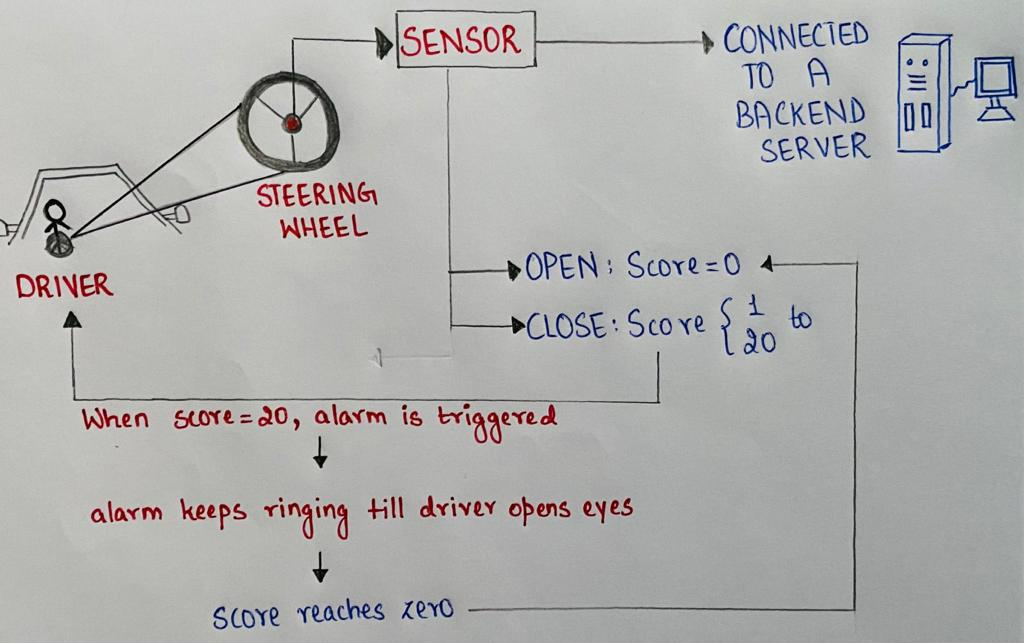 SENSOR
CONNECTED
TO A
BACKEND
SERVER
STEERING
WHEEL
DRIVER
OPEN: Score=0
CLOSE: Score { 1 to
20
When score=20, alarm is triggered
alarm keeps ringing till driver opens eyes
Score reaches zero